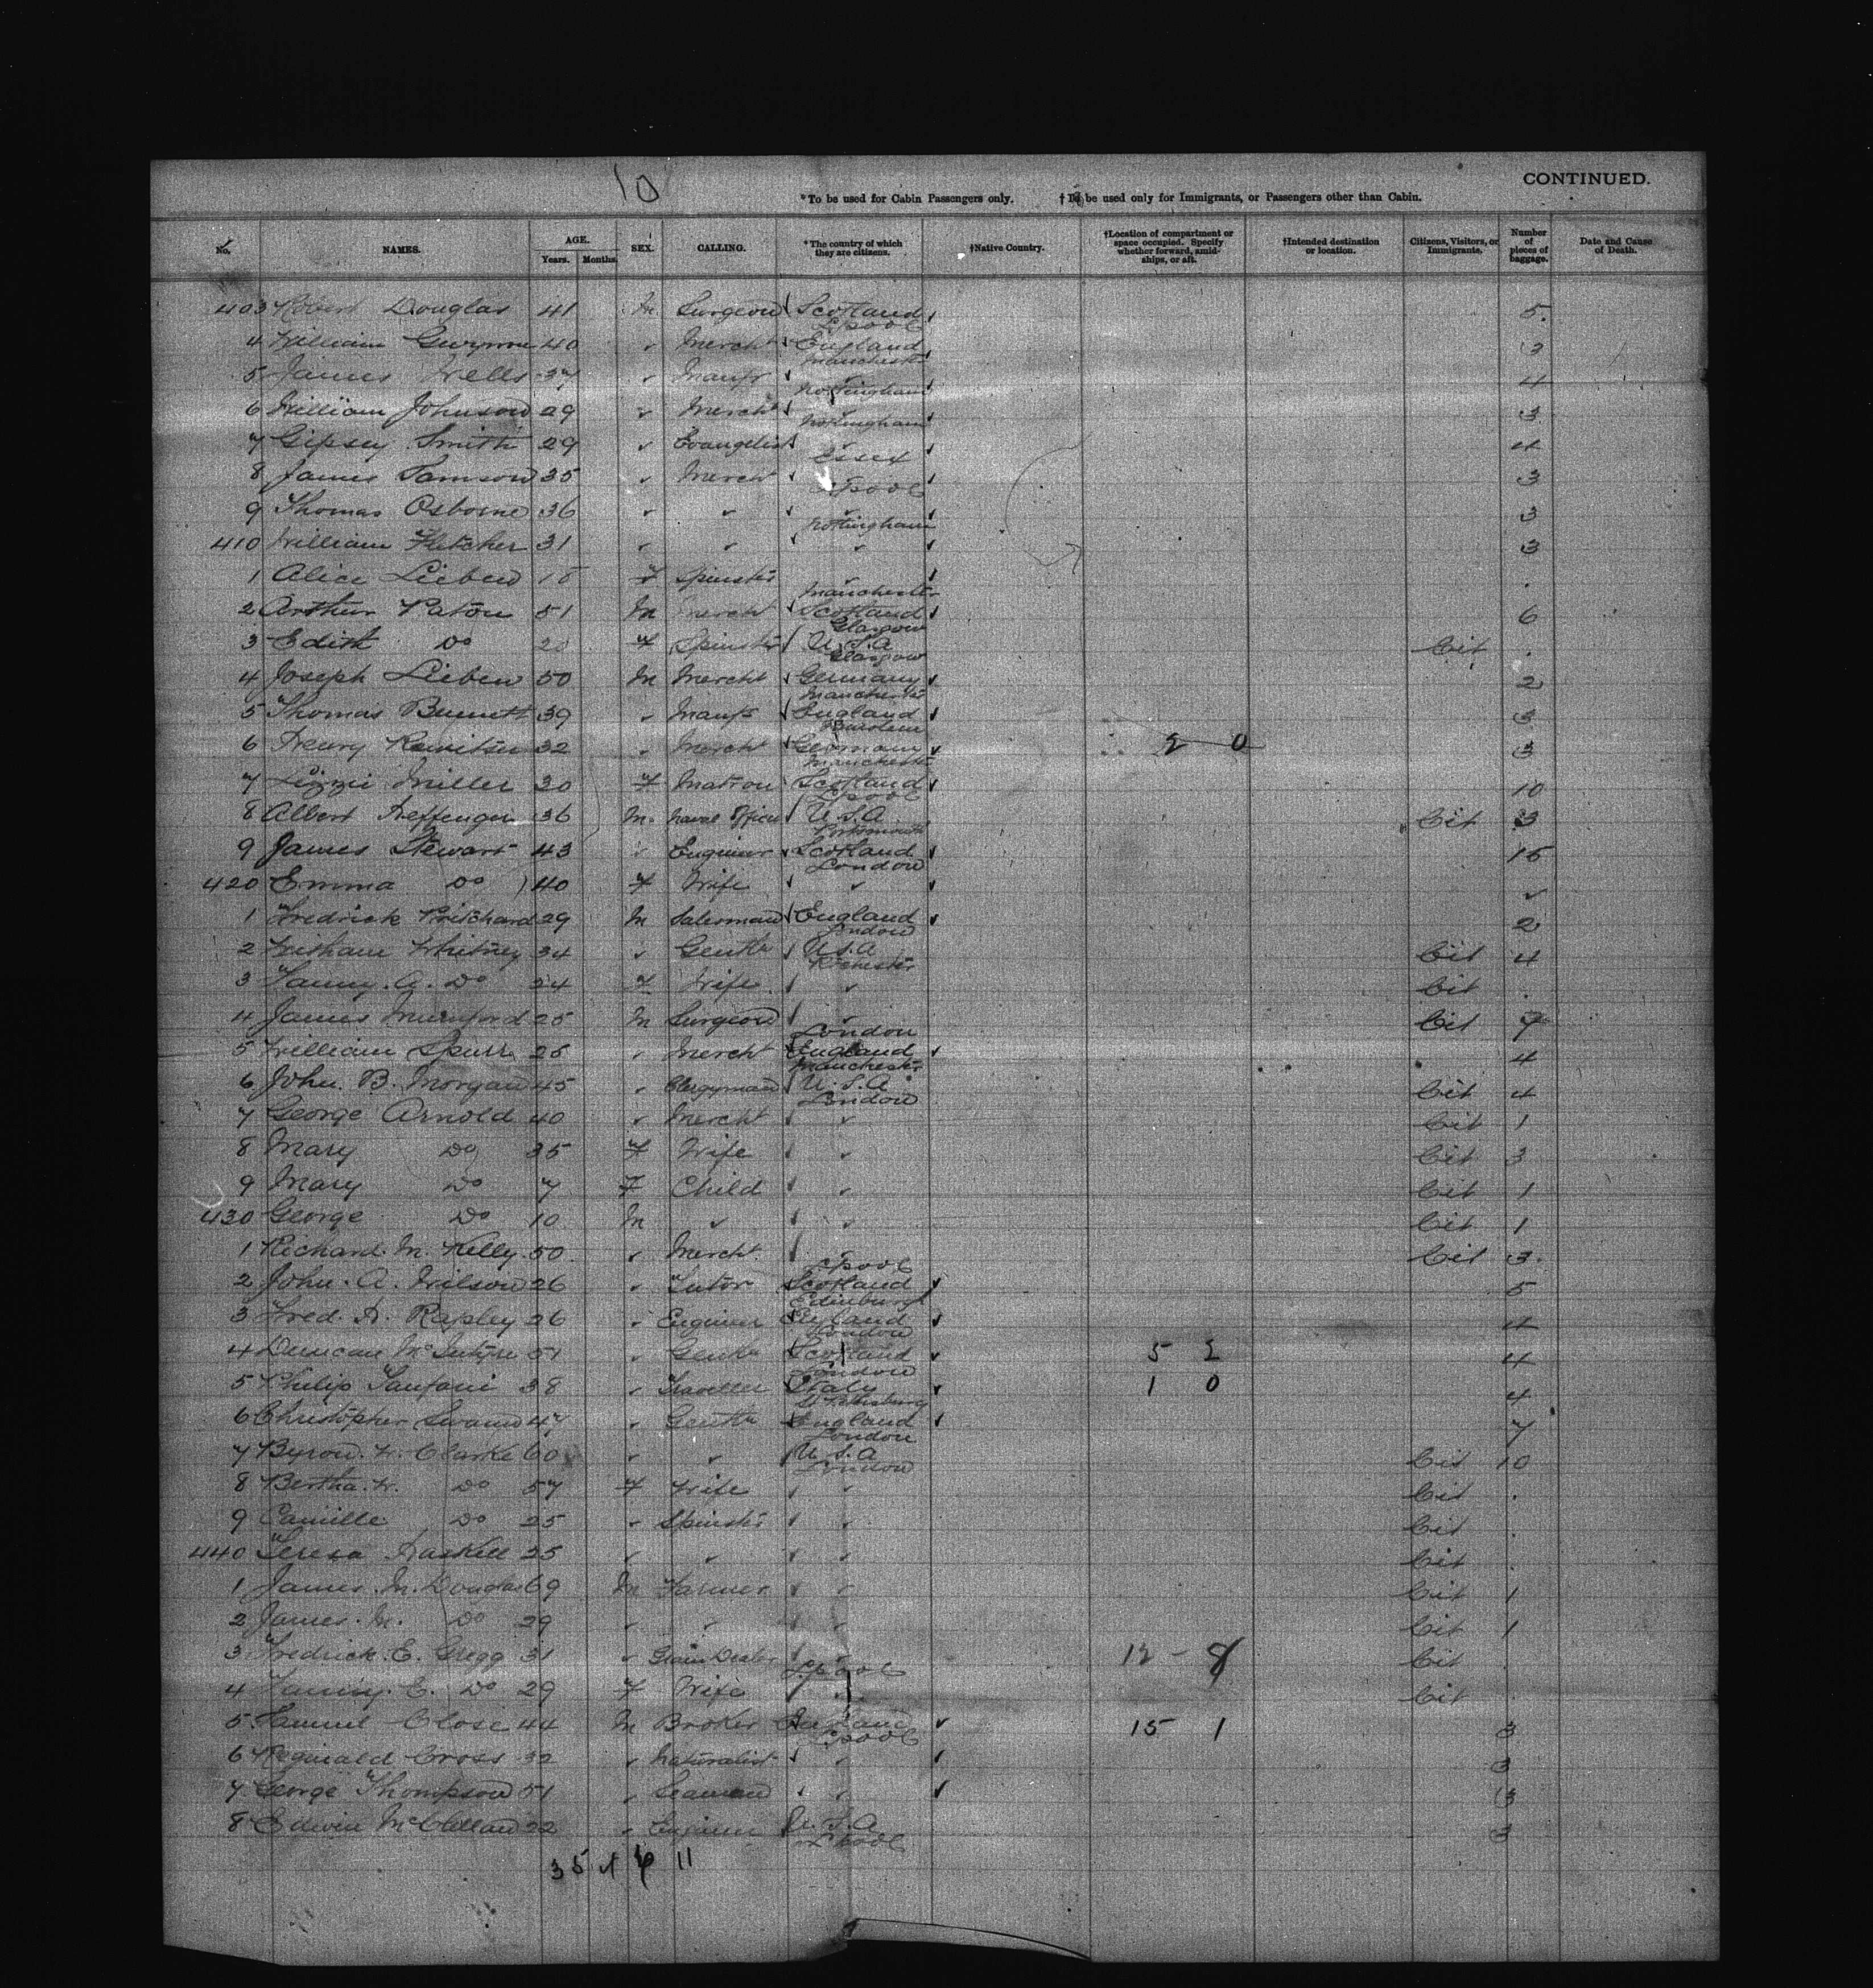 10
CONTINUED.
*To be used for Cabin Passengers only. †To be used only for Immigrants, or Passengers other than Cabin.
No. NAMES. AGE. Years. Months. SEX. CALLING. *The country of which they are citizens. †Native Country. †Location of compartment or space occupied. Specify whether forward, amidships, or aft. †Intended destination or location. Citizens, Visitors, or Immigrants. Number of pieces of baggage. Date and Cause of Death.
403 Robert Douglas 41 M Surgeon Scotland L'pool 5
4 William Gwynne 40 " Mercht England Manchester 3
5 James Wells 37 " Manfr " Nottingham 4
6 William Johnson 29 " Mercht " Nottingham 3
7 Gipsey Smith 29 " Evangelist " Essex 4
8 James Samson 35 " Mercht L'pool 3
9 Thomas Osborne 36 " " " Nottingham 3
410 William Fletcher 31 " " " 3
1 Alice Lieben F Spinster " Manchester
2 Arthur Paton 51 M Mercht Scotland Glasgow 6
3 Edith Do F Spinster U.S.A Glasgow Cit
4 Joseph Lieben 50 M Mercht Germany Manchester 2
5 Thomas Burnett 39 " Manfr England Burslem 3
6 32 " Mercht Germany Manchester 2 0 3
7 Lizzie Miller 30 F Matron Scotland L'pool 10
8 Albert 36 M. Naval Officer U.S.A Portsmouth Cit 3
9 James Stewart 43 " Engineer Scotland London 15
420 Emma Do 40 F Wife " "
1 Fredrick Pritchard 29 M Salesman England London 2
2 Whitney 34 " Gentln U.S.A Rochester Cit 4
3 Fanny. A. Do 24 F Wife " Cit
4 James Mumford 25 M Surgeon " London Cit 7
5 William Spurr 25 " Mercht England Manchester 4
6 John. B. Morgan 45 " Clergyman U.S.A London Cit 4
7 George Arnold 40 " Mercht " Cit 1
8 Mary Do 35 F Wife " Cit 3
9 Mary Do 7 F Child " Cit 1
430 George Do 10 M " " Cit 1
1 Richard. M. Kelly. 50 " Mercht " L'pool Cit 3
2 John. A. Wilson 26 " Tutor Scotland Edinburgh 5
3 Fred. H. Rapley 26 " Engineer England London 4
4 Duncan McIntyre 51 " Gentln Scotland London 5 2 4
5 Philip 38 " Traveller Italy St Petersburg 1 0 4
6 Christopher Swann 47 " Gentln England London 7
7 Byron. W. Clarke 60 " " U.S.A London Cit 10
8 Bertha. W. Do 57 F Wife " Cit
9 Camille Do 25 " Spinster " Cit
440 Teresa Haskell 25 " " " Cit
1 James. M. Douglas 69 M Farmer " Cit 1
2 James. M. Do 29 " " " Cit 1
3 Fredrick. E. Gregg 31 " Grain Dealer " L'pool 12 - 8 Cit
4 Fanny. E. Do 29 F Wife " Cit
5 Samuel Close 44 M Broker England L'pool 15 1 3
6 Reginald Cross 32 " Naturalist " 3
7 George Thompson 51 " Seaman " 3
8 Edwin McClelland 22 " Engineer U.S.A L'pool 3
35 11